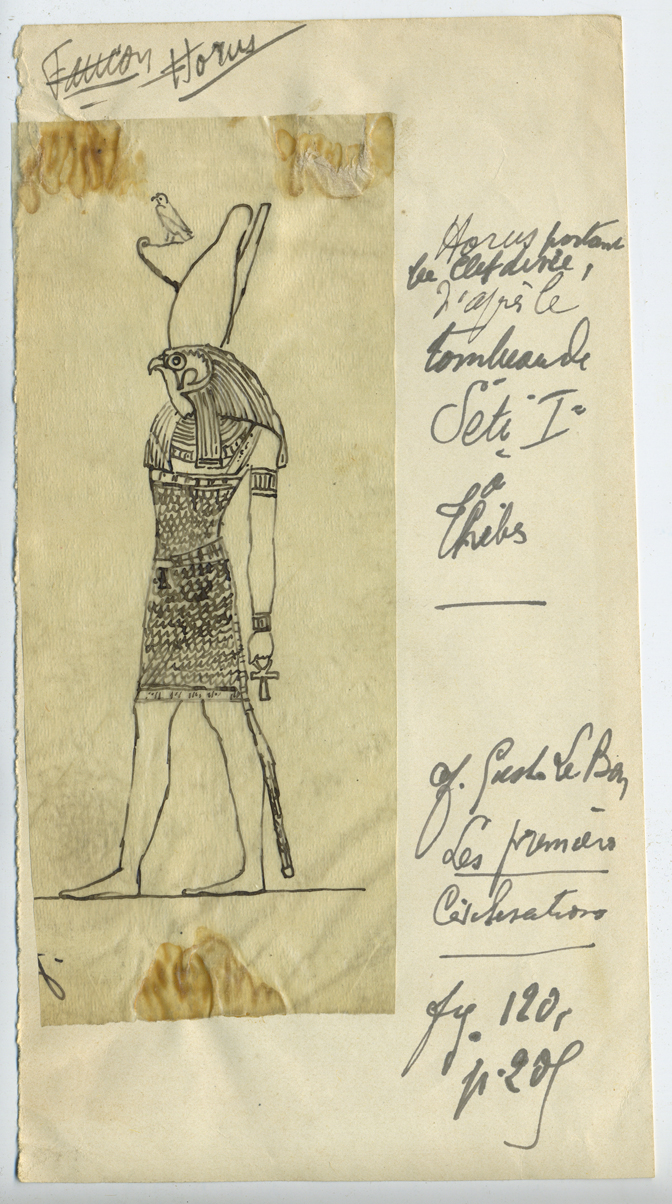 Faucon Horus
Horus portant
la Clef divine,
d'après le
tombeau de
Séti Iᵉʳ
à
Thèbes
cf. Gust. Le Bon,
Les premières
Civilisations
fig. 120,
p. 205